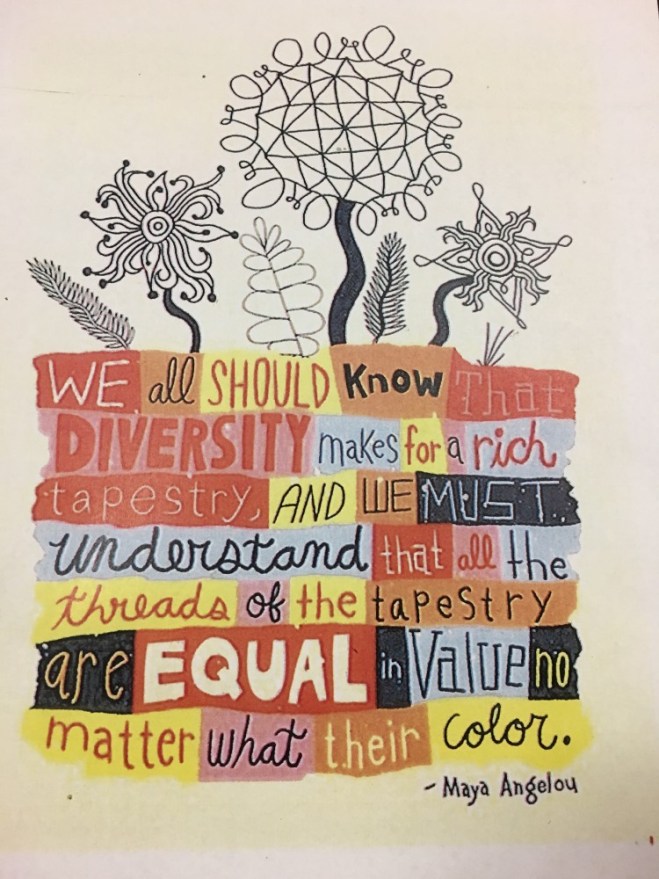 WE all SHOULD Know That
DIVERSITY makes for a rich
tapestry, AND WE MUST
understand that all the
threads of the tapestry
are EQUAL in Value no
matter what their color.
- Maya Angelou